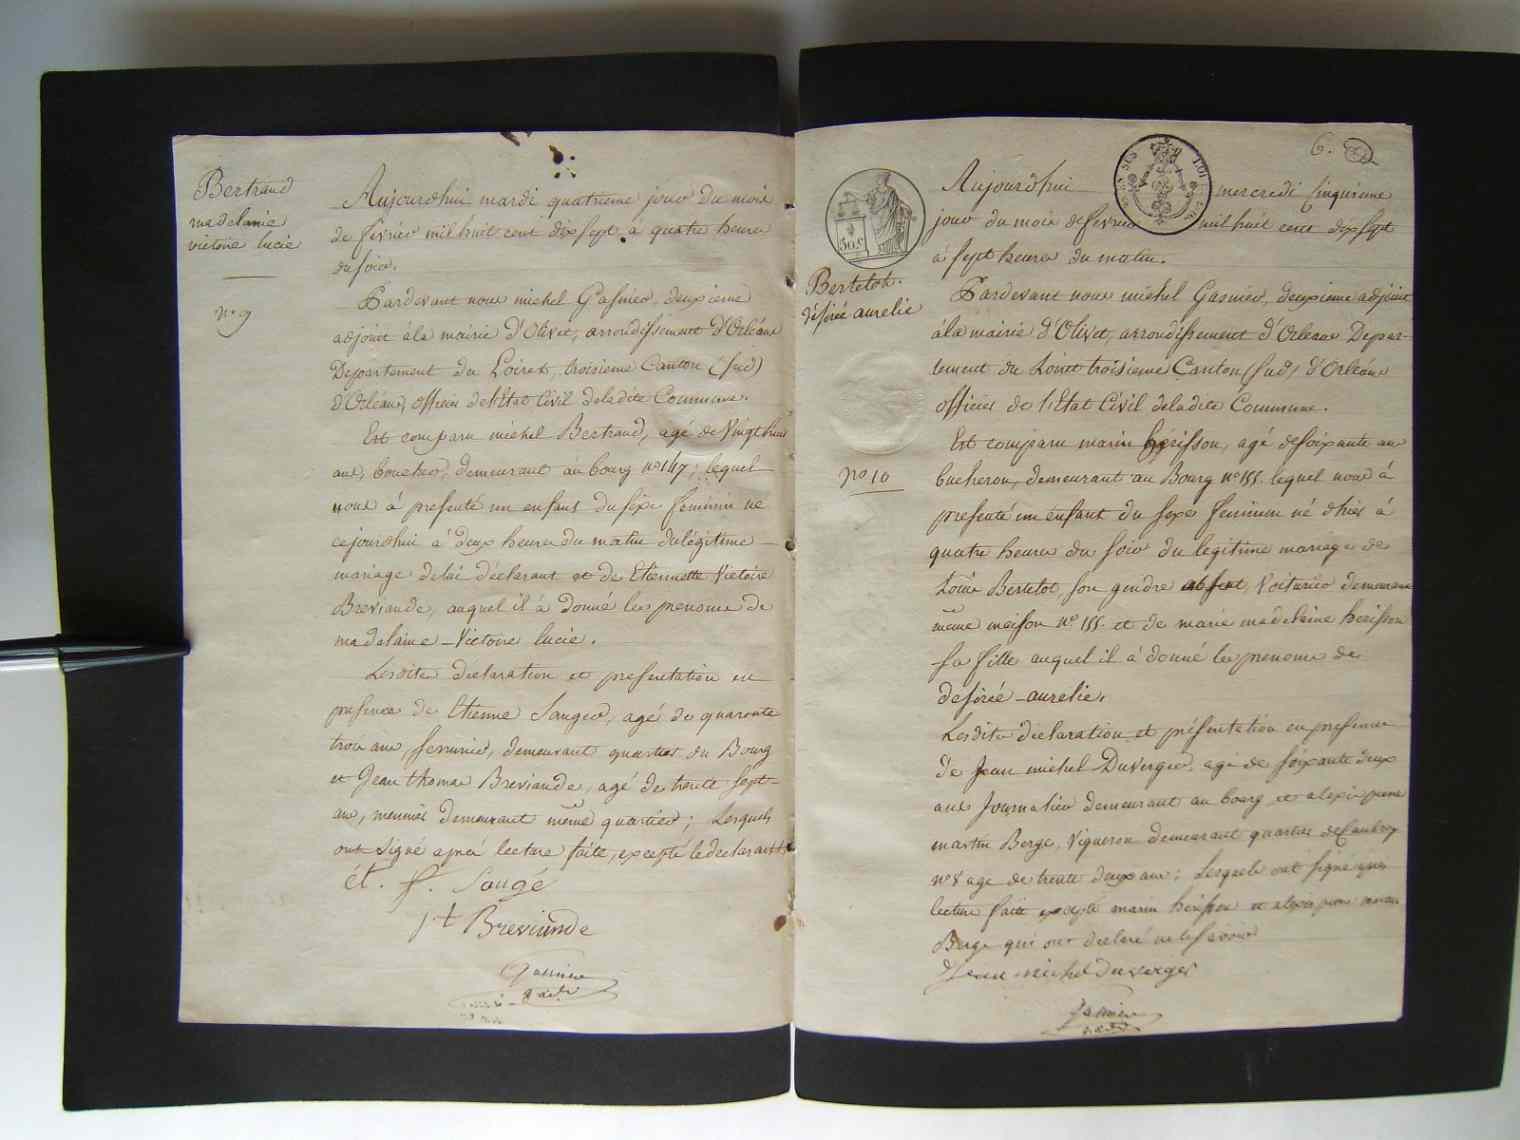 Bertrand
madelaine
victoire lucie
nº 9
Aujourdhui mardi quatrieme jour du mois
de fevrier mil huit cent dix sept, a quatre heures
du soir.
Pardevant nous michel Gasnier, deuxieme
adjoint à la mairie d'Olivet, arrondissement d'Orléans
Departement du Loiret, troisieme Canton (sud)
d'Orléans, officier de l'Etat Civil deladite Commune.
Est comparu michel Bertrand, agé de vingt huit
ans, boucher, demeurant au bourg nº 147; lequel
nous à presenté un enfant du sexe feminin né
cejourdhui à deux heures du matin du légitime
mariage delui déclarant et de Etiennette Victoire
Breviande, auquel il à donné les prenoms de
madelaine - Victoire lucie.
Lesdites declaration et presentation en
presence de Etienne Sauger, agé de quarante
trois ans, serrurier, demeurant quartier du Bourg
et Jean thomas Breviande, agé de trente sept
ans, meunier demeurant même quartier; Lesquels
ont signé après lecture faite, excepté le déclarant
ét. f. Saugé
jt Breviande
Gasnier
adt
6.
50 c
Bertelot.
désirée aurelie
nº 10
Aujourdhui mercredi cinquieme
jour du mois de fevrier mil huit cent dix sept
à sept heures du matin.
Pardevant nous michel Gasnier, deuxieme adjoint
à la mairie d'Olivet, arrondissement d'Orleans Depar-
tement du Loiret troisieme Canton (sud) d'Orléans
officier de l'Etat Civil deladite Commune.
Est comparu marin hérisson, agé de soixante ans
bucheron, demeurant au Bourg nº 155. lequel nous à
presenté un enfant du sexe feminin né d'hier à
quatre heures du soir du legitime mariage de
Louis Bertelot, son gendre absent, Voiturier demeurant
même maison nº 155. et de marie madelaine herisson
sa fille auquel il à donné les prenoms de
desirée - aurelie.
Lesdites déclaration et présentation en presence
de Jean michel Duverger, agé de soixante deux
ans Journalier demeurant au bourg, et alexis pierre
martin Berge, Vigneron demeurant quartier de
nº 8 agé de trente deux ans; Lesquels ont signé après
lecture faite excepté marin hérisson et alexis pierre martin
Berge qui ont déclaré ne le savoir
Jean michel duverger
Gasnier
adt